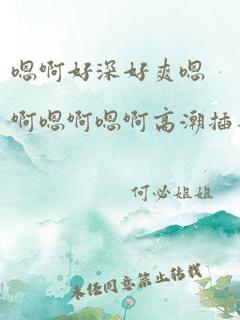 嗯啊好深好爽嗯
啊嗯啊嗯啊高潮插
何必姐姐
未经同意禁止转载